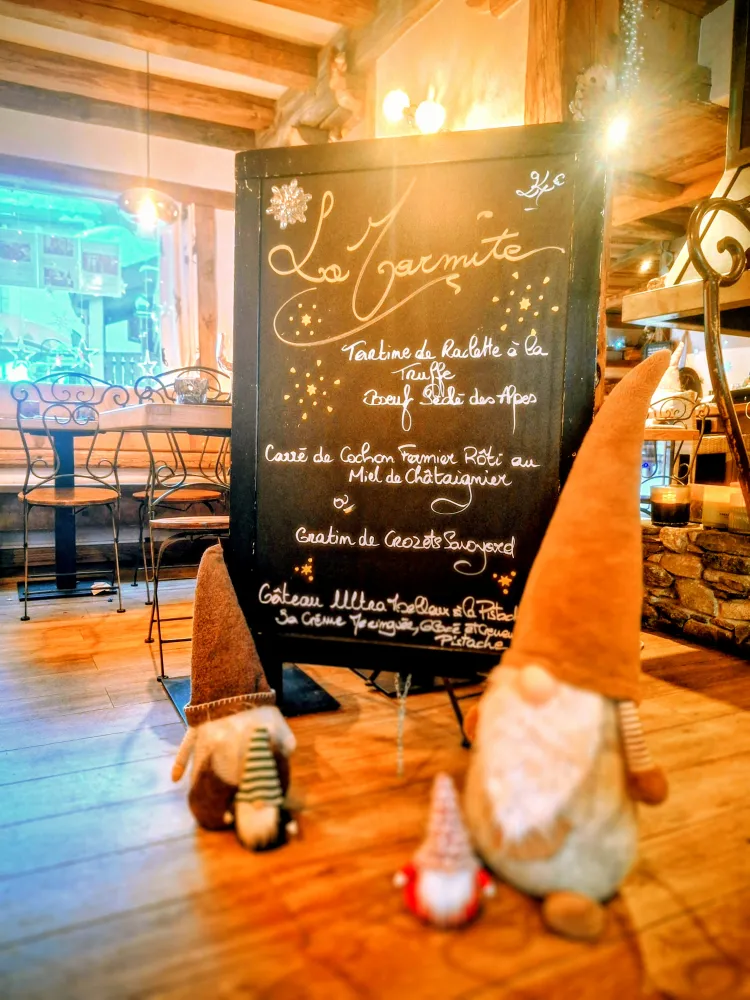 La Marmite
Tartine de Raclette à la
Truffe
Bœuf Séché des Alpes
Carré de Cochon Fermier Rôti au
Miel de Châtaignier
Gratin de Crozets Savoyard
Gâteau Ultra Moelleux à la Pistach
Sa Crème Meringuée, Glacé et
Pistache